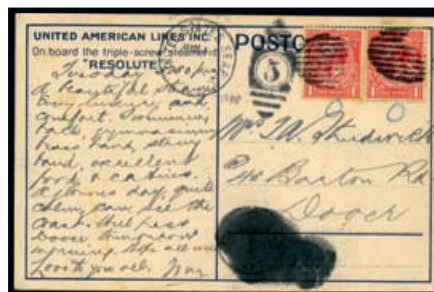 UNITED AMERICAN LINES INC.
On board the triple-screw steamer
"RESOLUTE"
POSTC
5
Tuesday 7.30 pm
A beautiful steamer
Every luxury and
comfort. Swimming
bath, gymnasium
brass band, string
band, excellent
food & cabins.
A glorious day, quite
calm, can see the
coast. Shall pass
Dover tomorrow
morning. Hope all well
Love to you all.
Mrs T.W.
Barton Rd
Dover